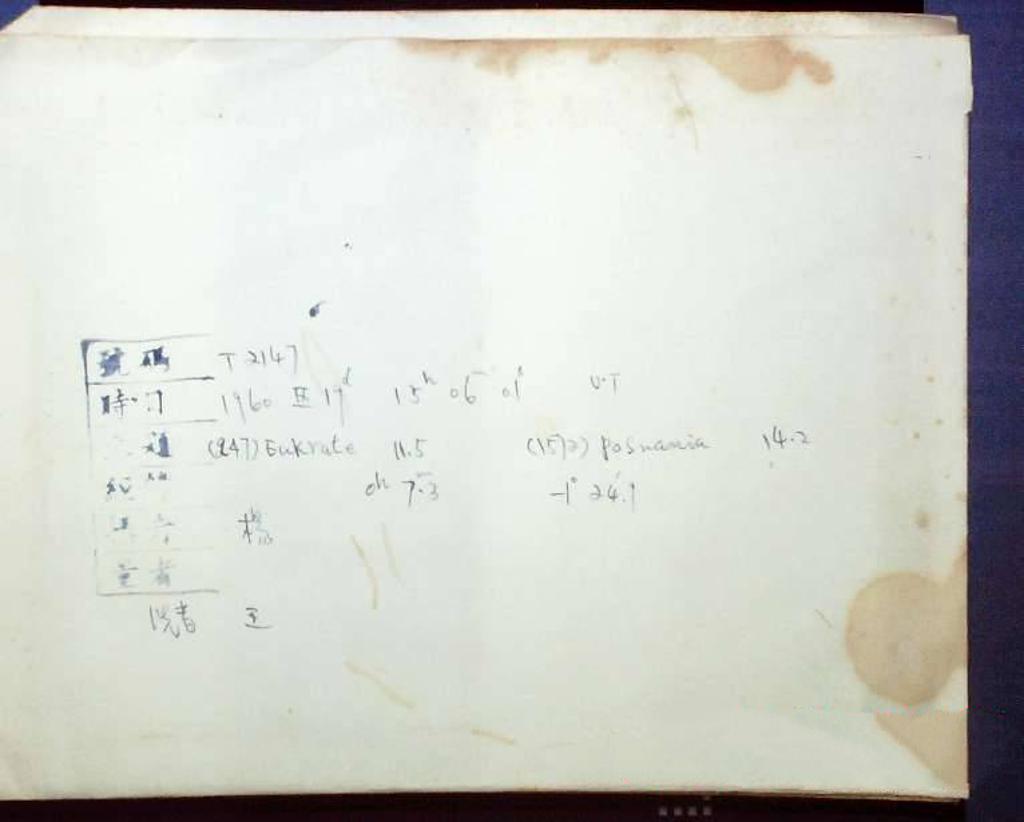 號碼 T 2147
時刻 1960 Ⅸ 19ᵈ 15ʰ 06ᵐ 01ˢ U.T
(247) Eukrate 11.5 (1572) Posnania 14.2
0ʰ 7ᵐ.3 -1° 24'.9
楊
者
洗者 王